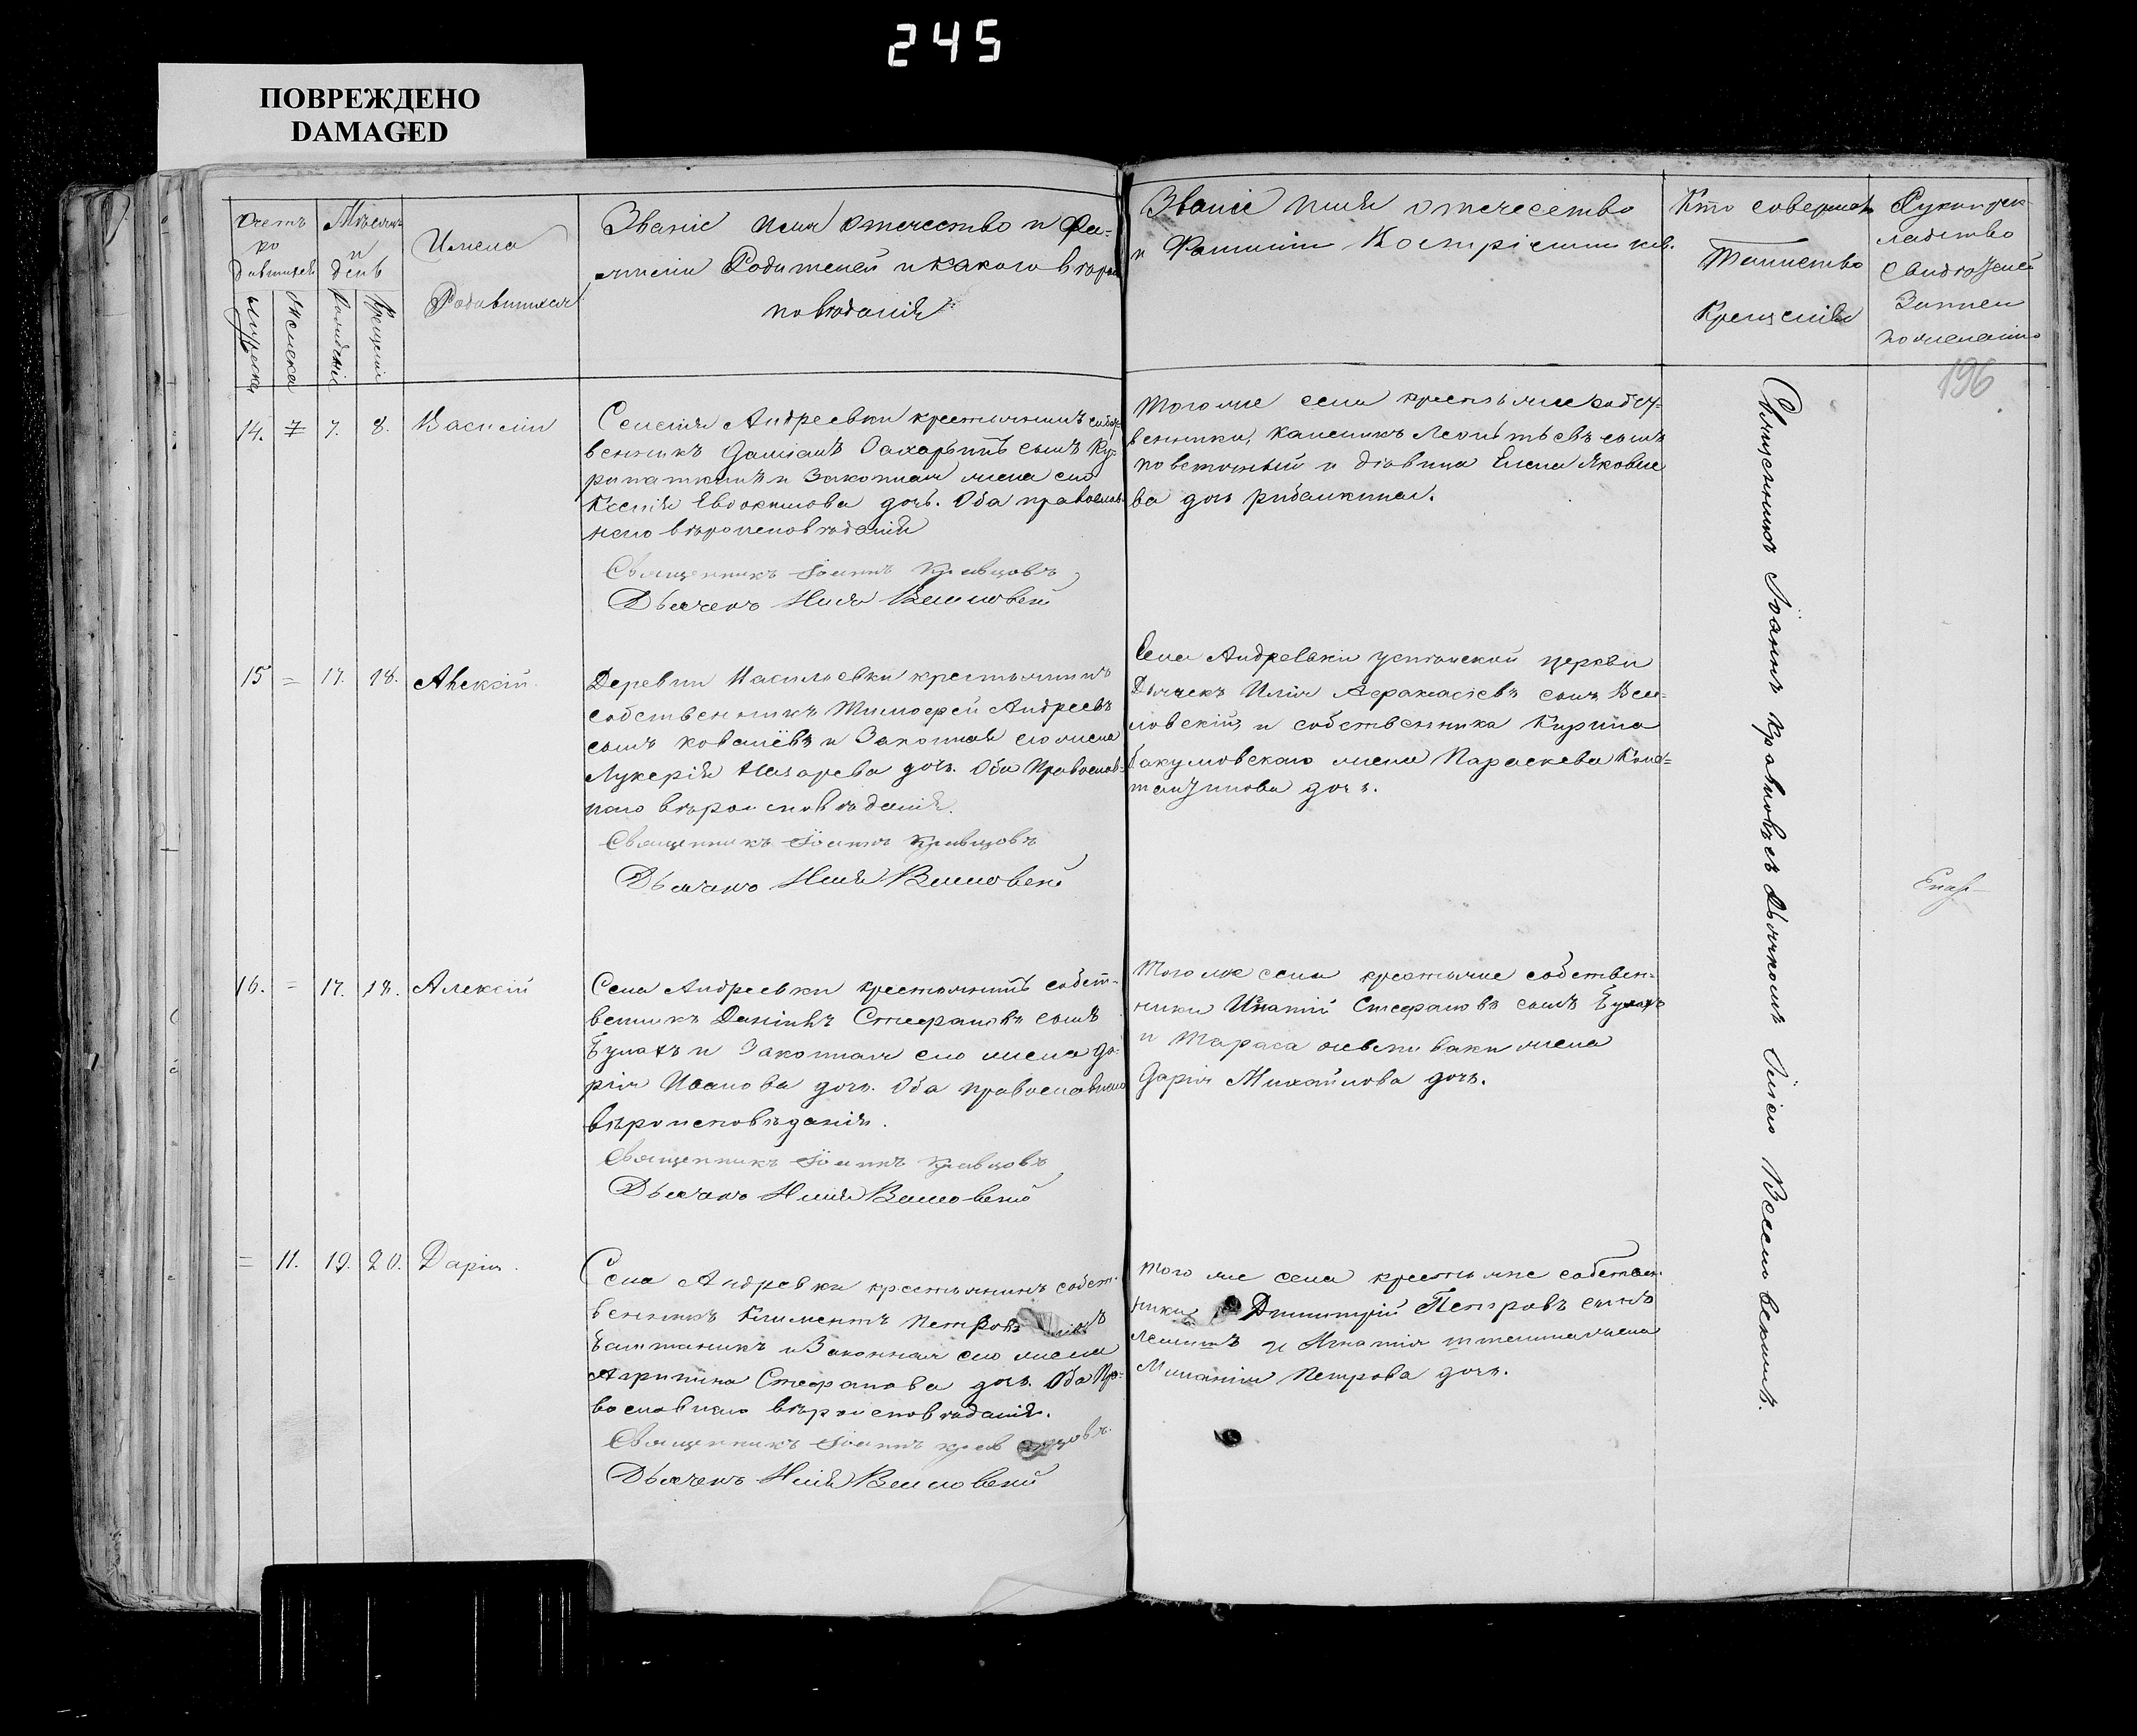 245
ПОВРЕЖДЕНО
DAMAGED
Счетъ
ро
дившихся
Мѣсяцъ
и
день
Имена
Родившихся
Званіе Имя Отчество и Фа-
миліи Родителей и какого вѣрои
повѣданія
Званіе Имя отчесетво
и Фамиліи Воспріемниковъ.
Кто совершалъ
Таинство
Крещенія
Рукопри
кладство
Свидѣтелей
Записи
по желанію
мужеска
женска
Рожденія
Крещенія
196
14. 7. 8. Василій
Селенія Андреевки крестьянинъ собст
венникъ Даміанъ Захарьинъ сынъ Ку
рипаткинъ и Законная жена его
Ксенія Евдокимова дочь. Оба православ
наго вѣроисповѣданія
Священникъ Іоаннъ Кравцовъ
Дьячекъ Илія
тогоже села крестьяне собст-
венники, Леонтьевъ сынъ
и дѣвица Елена Яковле
ва дочь
15 = 17. 18. Алексій
Деревни Васильевки крестьянинъ
собственникъ Тимофей Андреевъ
сынъ Ковалёвъ и Законная его жена
Лукерія Назарева дочь. Оба Православ-
наго вѣроисповѣданія.
Священникъ Іоаннъ Кравцовъ
Дьячекъ Илія
Села Андревки Успѣнской церкви
Дьячекъ Илія Афанасіевъ сынъ Вел-
ловскій, и собственника Кирила
Бакумовскаго жена Параскева Конс=
тантинова дочь.
16. = 17. 18. Алексій
Села Андреевки крестьянинъ собст=
венникъ Даніилъ Стефановъ сынъ
Булахъ и Законная его жена Да-
рія Иванова дочь. Оба православнаго
вѣроисповѣданія.
Священникъ Іоаннъ Кравцовъ
Дьячекъ Илія
Того же села крестьяне собствен=
ники Игнатій Стефановъ сынъ Булахъ
и Тараса жена
Дарія Михайлова дочь.
= 11. 19. 20. Дарія.
Села Андревки крестьянинъ собст-
венникъ Климентъ Петровъ
и Законная его жена
Агрипина Стефанова дочь. Оба Пра-
вославнаго вѣроисповѣданія.
Священникъ Іоаннъ Кравцовъ.
Дьячекъ Илія
того же села крестьяне собствен
ники Димитрій Петровъ сынъ
и Игнатія жена
Меланія Петрова дочь.
Священникъ Іоаннъ Кравцовъ съ Дьячкомъ Иліею